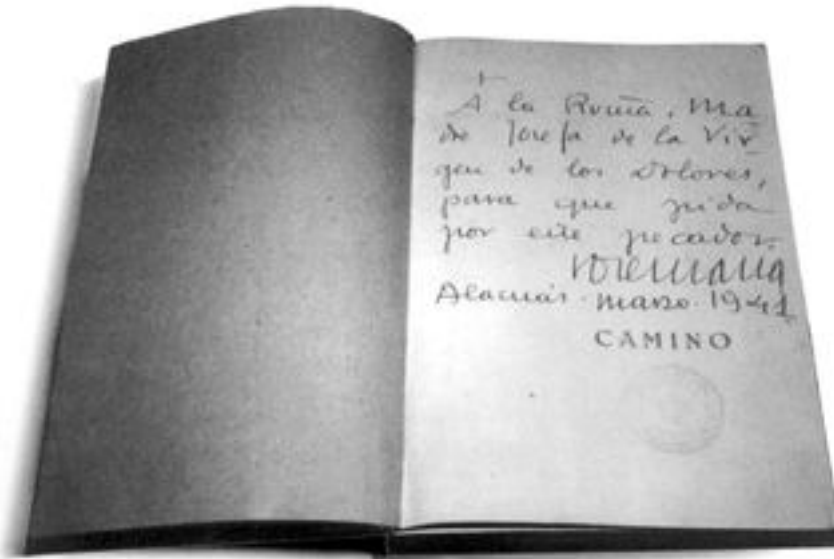 +
A la Rvma. Ma
dre Josefa de la Vir
gen de los Dolores,
para que pida
por este pecador.
Josemaría
Alacuás · marzo · 1941
CAMINO